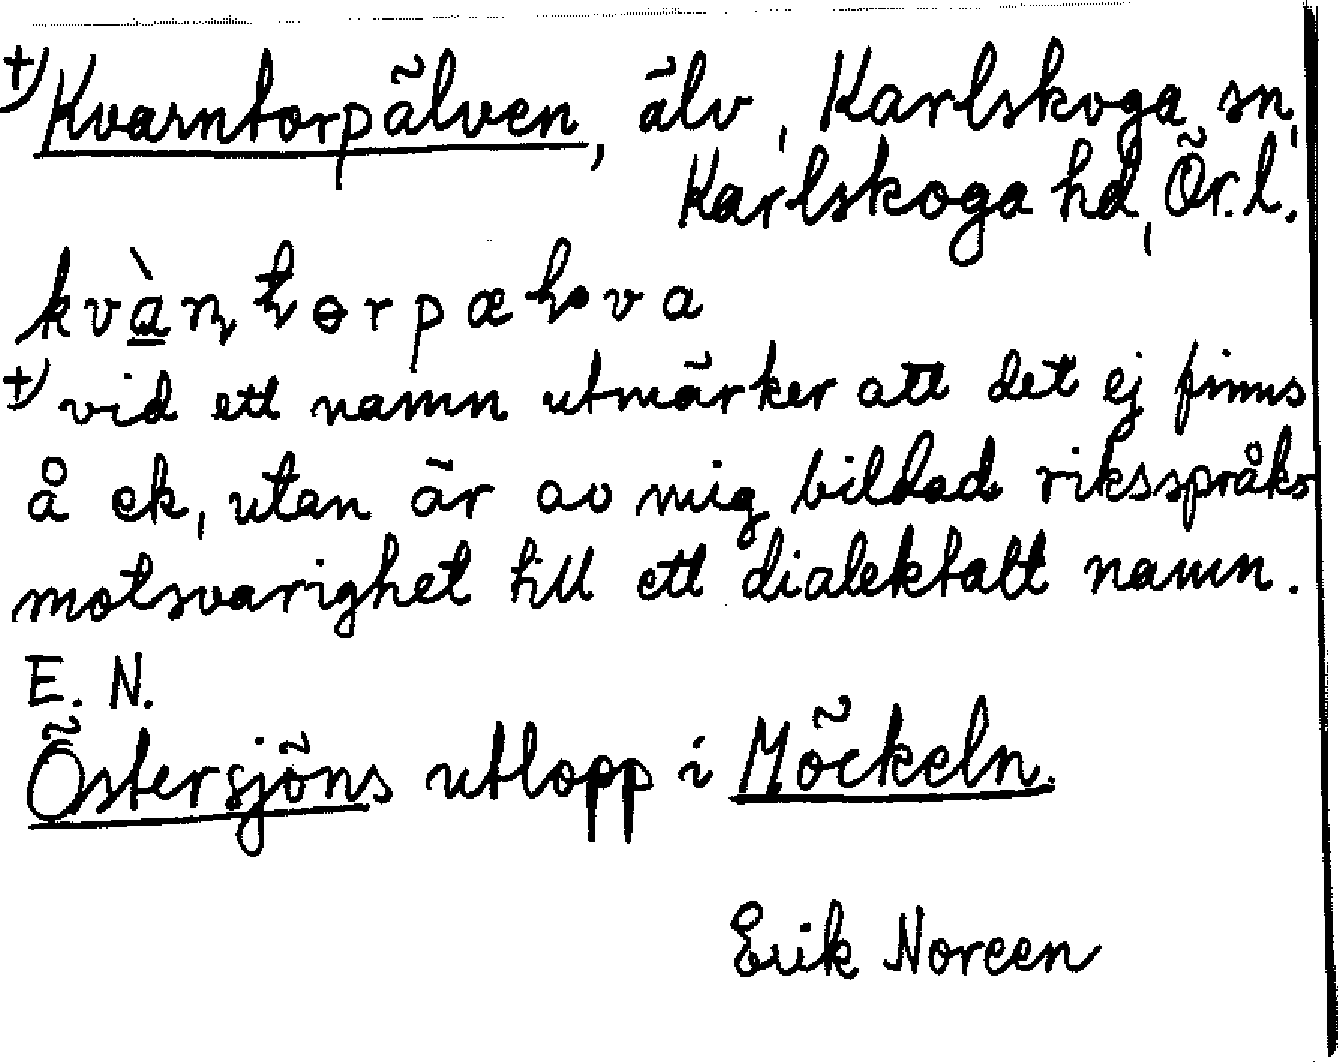 +) Kvarntorpälven, älv, Karlskoga sn,
Karlskoga hd, Ör.l.
+) vid ett namn utmärker att det ej finns
å ek, utan är av mig bildad riksspråks
motsvarighet till ett dialektalt namn.
E. N.
Östersjöns utlopp i Möckeln.
Erik Noreen